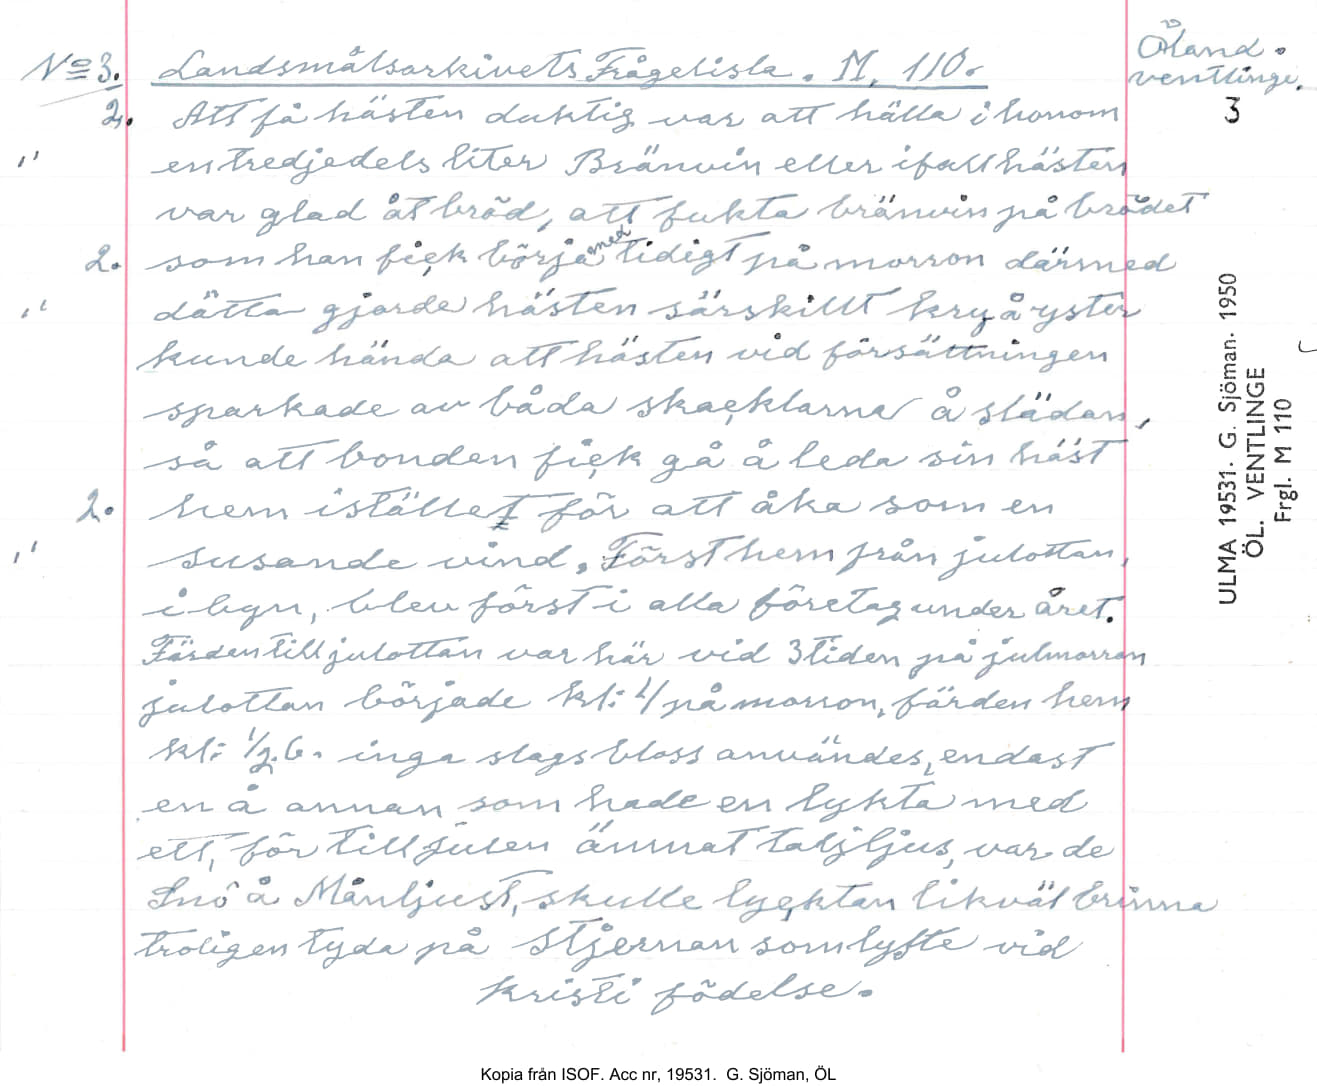 No 3. Landsmålsarkivets Frågelista. M. 110.
Öland.
Ventlinge.
3
2. Att få hästen duktig var att hälla i honom
" en tredjedels liter Bränvin eller ifall hästen
var glad åt bröd, att fukta bränvin på brödet
2. som han fick börja med tidigt på morron därmed
" dätta gjorde hästen särskillt kry å yster
kunde hända att hästen vid försättningen
sparkade av båda skacklarna å slädan,
så att bonden fick gå å leda sin häst
2. hem istället för att åka som en
" susande vind. Först hem från julottan,
i byn, blev först i alla företag under året.
Färden till julottan var här vid 3 tiden på julmorran
julottan började kl: 4 på morron, färden hem
kl: 1/2. 6. inga slags bloss användes, endast
en å annan som hade en lykta med
ett, för till julen ämnat talgljus, var de
Snö å Månljust, skulle lycktan likväl brinna
troligen tyda på stjernan som lyste vid
kristi födelse.
ULMA 19531. G. Sjöman. 1950
ÖL. VENTLINGE
Frgl. M 110
Kopia från ISOF. Acc nr, 19531. G. Sjöman, ÖL